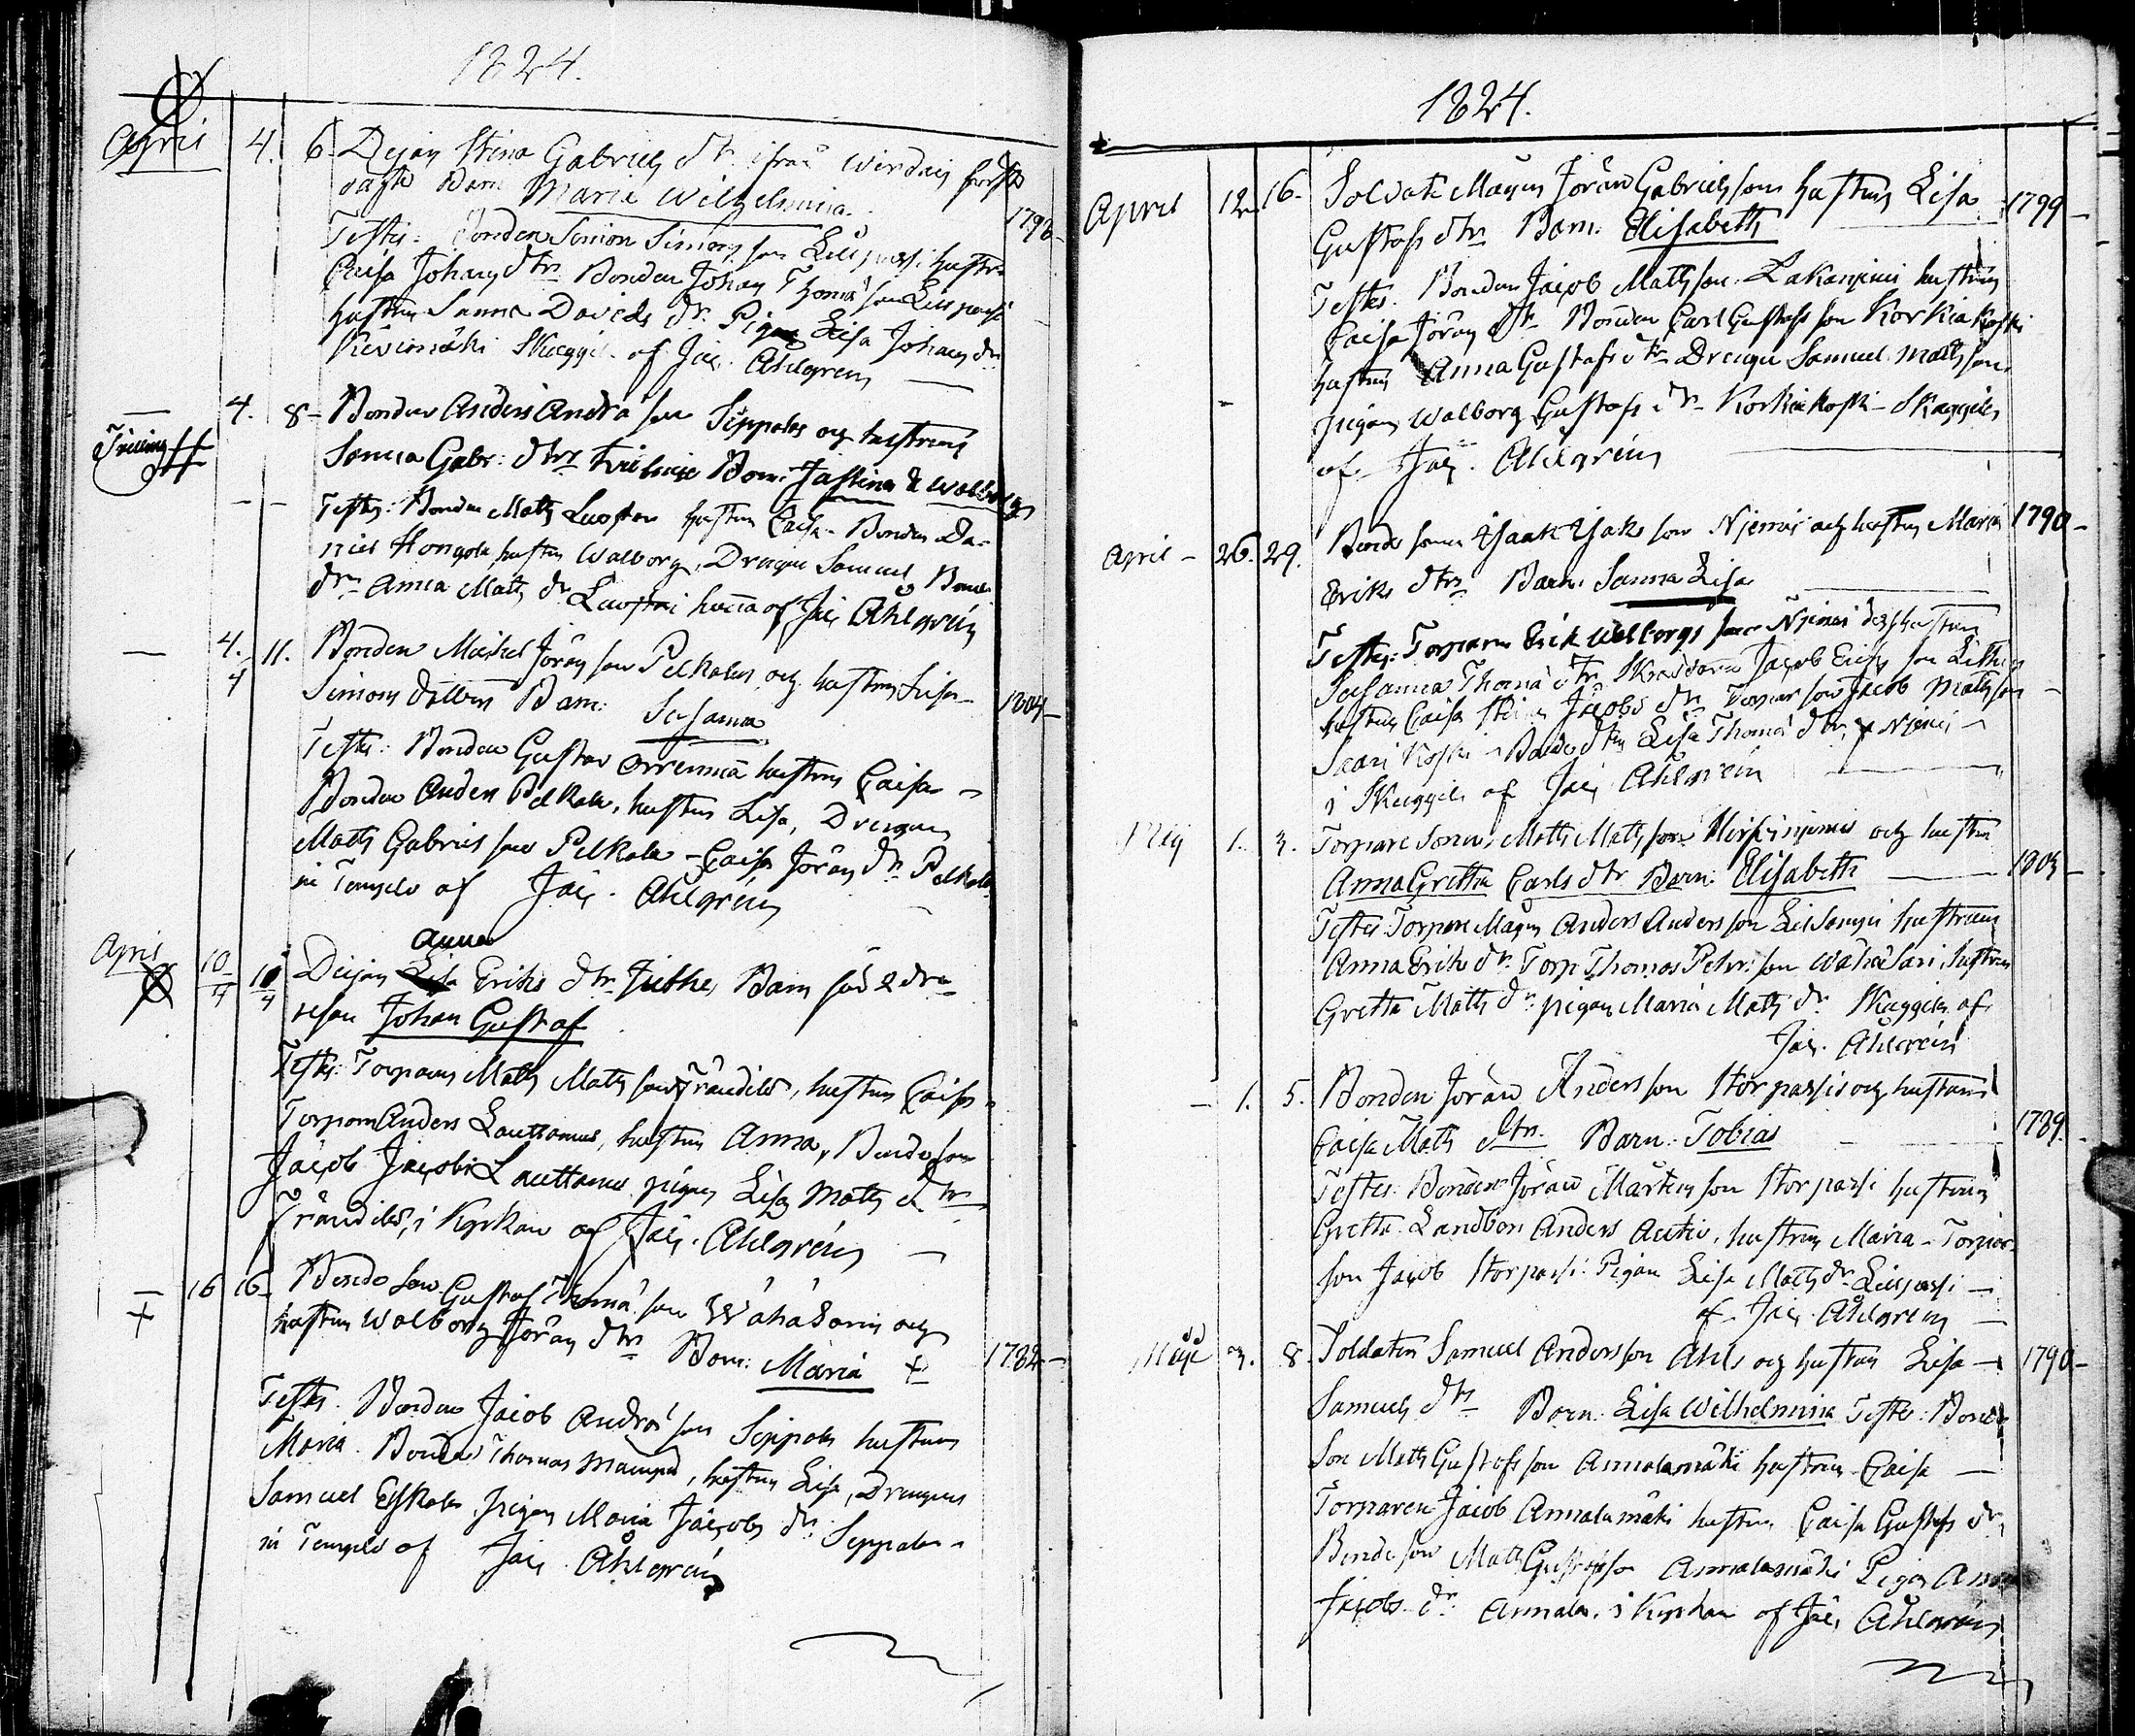 1824.
April 4. 6. Pigan Stina Gabriels dtr. ifrån Wirdois
Barn Maria Wilhelmina. 1798
Testes: Bonden Simon Simons son Lillparsi hustru
Caisa Johans dtr. Bonden Johan Thomæ son Lillparsi
hustrun Sanna Davids dr. Pigan Lisa Johans dr.
Kivimäki Skaggils. af Jac. Ahlgren
4. 8 Bonden Anders Andræ son Seppälä och hustrun
Tvilling
Sanna Gabr: dtr Barn: Justina & Walborg
Testes: Bonden Matts hustrun Caisa. Bonden Da-
niel Hongola, hustrun Walborg, Drengen Samuel, Bonde
dr. Anna Matts dr. af Jac. Ahlgren
4. 11. Bonden Michel Jörans son Pelkala och hustrun Lisa
4
Simons dotter Barn: Susanna 1804
Testes: Bonden Gustav Orrenmaa hustrun Caisa
Bonden Anders Pelkala, hustrun Lisa, Drengen
Matts Gabriels son Pelkala - Caisa Jörans dr. Pelkala
in Templo af Jac. Ahlgren
Anna
April 10/4 10/4 Pigan Lisa Eriks dtr. Barn
Johan Gustaf
Testes: Torparen Matts Matts son Trändilä, hustrun Caisa
Torparn Anders Lauttamus, hustrun Anna, Bondeson
Jacob Jacobs Lauttamus pigan Lisa Matts dtr
Trändilä, i Kyrkan af Jac. Ahlgren
16 16 Bonde Son Gustaf Thomæ son Wähäsari och
+
hustrun Walborg Jörans dtr Barn: Maria + 1782
Testes. Bonden Jacob Andræ son Seppälä hustrun
Maria. Bonden Thomas Mämpä, hustrun Lisa, Drengen
Samuel Eskola, Pigan Maria Jacobs dr. Seppälä
in Templo af Jac. Ahlgren
1824.
April 12 16. Soldaten Magnus Jöran Gabriels son hustrun Lisa 1799
Gustafs dtr Barn: Elisabeth
Testes. Bonden Jacob Matts son Lakaniemi hustrun
Caisa Jörans dtr. Bonden Carl Gustafs son Korkiakoski
hustrun Anna Gustafs dtr Drengen Samuel Matts son
pigan Walborg Gustafs dr. Korkiakoski - Skaggils
af Jac. Ahlgren
April - 26. 29. Bonde sonen Isaak Isaks son Njemis och hustrun Maria 1790
Eriks dtr Barn: Sanna Lisa
Testes: Torparen Erik Walborgs son Njemi hustrun
Susanna Thomæ dtr Skräddaren Jacob Erichs son
hustrun Caisa Stina Jacobs dr. Torpar son Jacob Matts son
Saari Koski - Bonde dtr Lisa Thomæ dtr, Njemi
i Skaggils af Jac. Ahlgren
Maij 1. 3. Torpare Sonen Matts Matts son och hustrun
Anna Gretha Carls dtr Barn: Elisabeth 1803
Testes: Torparen Magnus Anders Anders son hustrun
Anna Eriks dr. Torp. Thomas Pehr: son Wähä Sari, hustrun
Gretha Matts dr. pigan Maria Matts dr. Skaggils af
Jac. Ahlgren
1. 5. Bonden Jöran Anders son Storparsi och hustrun
Caisa Matts dtr. Barn: Tobias 1789.
Testes. Bonden Jöran Mårtens son Storparsi hustrun
Gretha. Landbon Anders Autio, hustrun Maria - Torpar
son Jacob Storparsi. Pigan Lisa Matts dr Lillparsi
af Jac. Ahlgren
Maji 3. 8. Soldaten Samuel Anders son Ahl och hustrun Lisa 1790
Samuels dtr Barn: Lisa Wilhelmina Testes: Bonde
Son Matts Gustafs son Annalamäki hustrun Caisa
Torparen Jacob Annalamäki hustrun Caisa Gustafs dr
Bonde son Matts Gustafs son Annalamäki Pigan Anna
Jacobs dr. Annala, i Kyrkan af Jac. Ahlgren